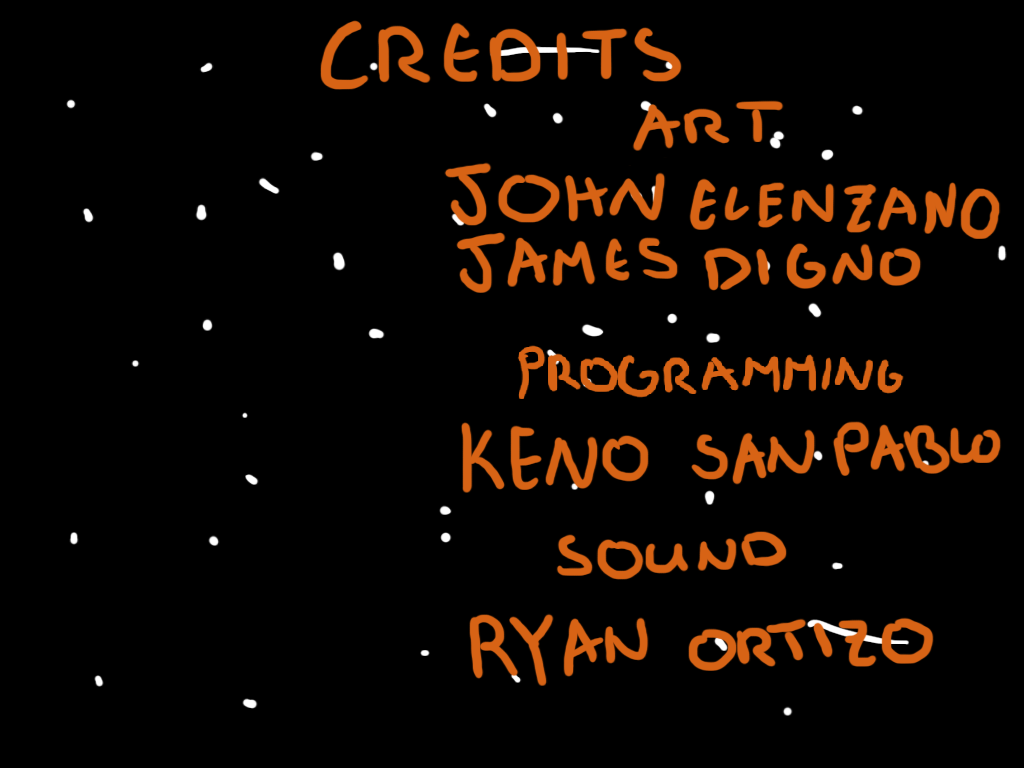 CREDITS
ART
JOHN ELENZANO
JAMES DIGNO
PROGRAMMING
KENO SAN PABLO
SOUND
RYAN ORTIZO